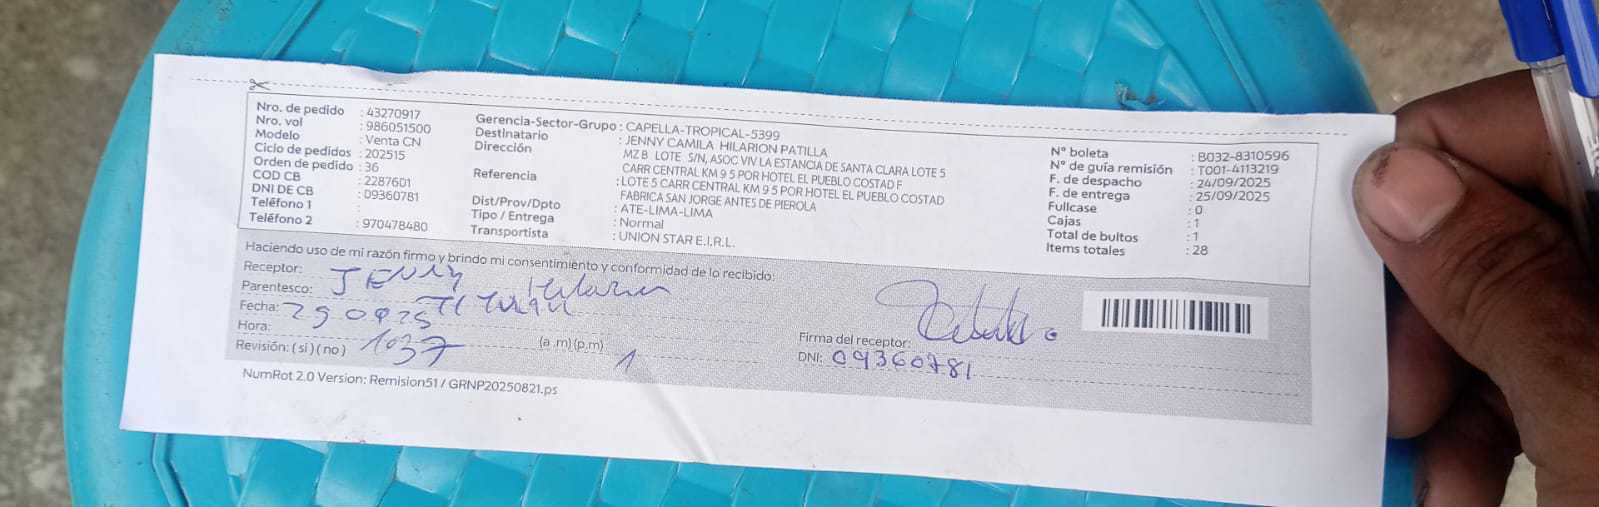 Nro. de pedido : 43270917
Nro. vol : 986051500
Modelo : Venta CN
Ciclo de pedidos : 202515
Orden de pedido : 36
COD CB : 2287601
DNI DE CB : 09360781
Teléfono 1 :
Teléfono 2 : 970478480
Gerencia-Sector-Grupo : CAPELLA-TROPICAL-5399
Destinatario : JENNY CAMILA HILARION PATILLA
Dirección MZ B LOTE S/N, ASOC VIV LA ESTANCIA DE SANTA CLARA LOTE 5
CARR CENTRAL KM 9 5 POR HOTEL EL PUEBLO COSTAD F
Referencia : LOTE 5 CARR CENTRAL KM 9 5 POR HOTEL EL PUEBLO COSTAD
FABRICA SAN JORGE ANTES DE PIEROLA
Dist/Prov/Dpto : ATE-LIMA-LIMA
Tipo / Entrega : Normal
Transportista : UNION STAR E.I.R.L.
N° boleta : B032-8310596
N° de guía remisión : T001-4113219
F. de despacho : 24/09/2025
F. de entrega : 25/09/2025
Fullcase : 0
Cajas : 1
Total de bultos : 1
Items totales : 28
Haciendo uso de mi razón firmo y brindo mi consentimiento y conformidad de lo recibido:
Receptor: JENNY
Parentesco:
Fecha:
Hora: 1037 (a .m) (p.m)
Revisión: ( si ) ( no )
Firma del receptor:
DNI: 09360781
NumRot 2.0 Version: Remision51 / GRNP20250821.ps